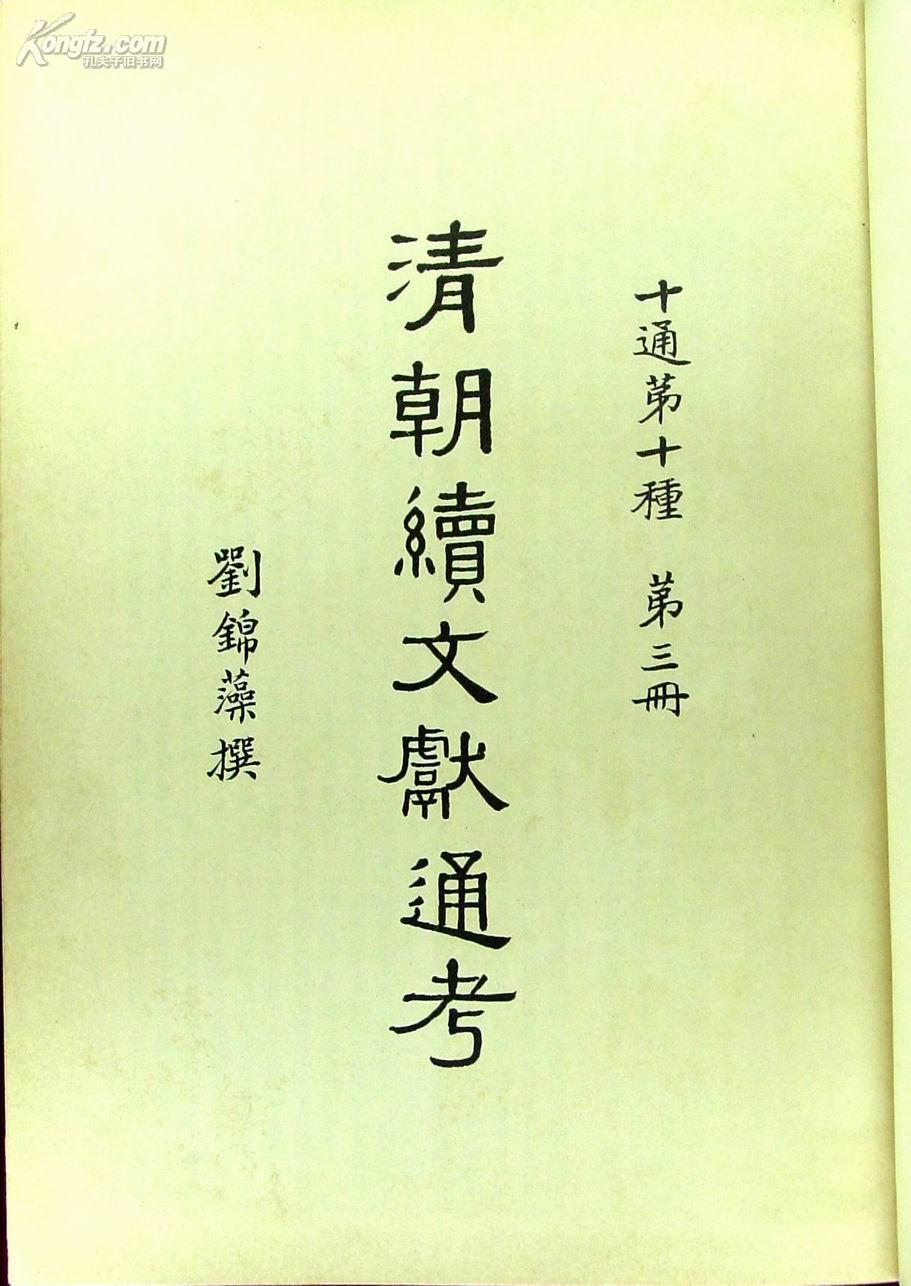 Kongfz.com
孔夫子旧书网
十通第十種 第三冊
清朝續文獻通考
劉錦藻撰